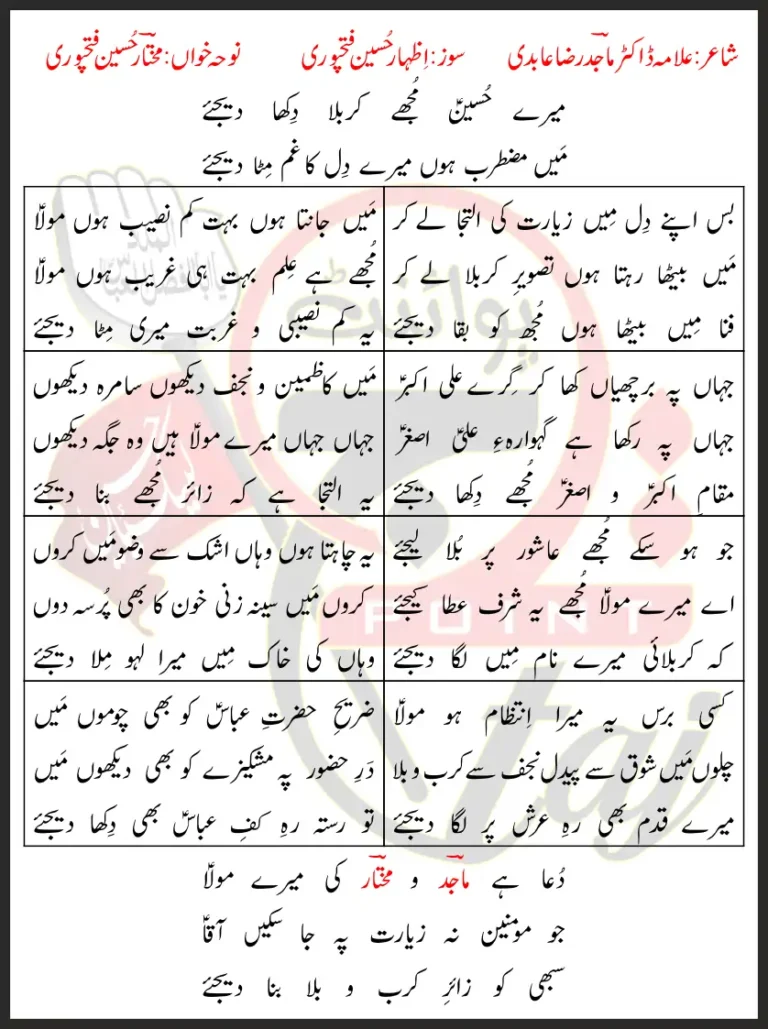 شاعر: علامہ ڈاکٹر ماجد رضا عابدی سوز: اِظہار حُسین فتحپوری نوحہ خواں: مختار حُسین فتحپوری
میرے حُسینؑ مُجھے کربلا دِکھا دیجئے
مَیں مضطرب ہوں میرے دِل کا غم مِٹا دیجئے
بس اپنے دِل مِیں زیارت کی التجا لے کر
مَیں بیٹھا رہتا ہوں تصویرِ کربلا لے کر
فنا مِیں بیٹھا ہوں مُجھ کو بقا دیجئے
مَیں جانتا ہوں بہت کم نصیب ہوں مولاؑ
مُجھے ہے عِلم بہت ہی غریب ہوں مولاؑ
یہ کم نصیبی و غربت میری مِٹا دیجئے
جہاں پہ برچھیاں کھا کر گِرے علی اکبرؑ
جہاں پہ رکھا ہے گہوارہءِ علیؑ اصغرؑ
مقامِ اکبرؑ و اصغرؑ مُجھے دِکھا دیجئے
مَیں کاظمین و نجف دیکھوں سامرہ دیکھوں
جہاں جہاں میرے مولاؑ ہیں وہ جگہ دیکھوں
یہ التجا ہے کہ زائر مُجھے بنا دیجئے
جو ہو سکے مُجھے عاشور پر بُلا لیجئے
اے میرے مولاؑ مُجھے یہ شرف عطا کیجئے
کہ کربلائی میرے نام مِیں لگا دیجئے
یہ چاہتا ہوں وہاں اشک سے وضو مَیں کروں
کروں مَیں سینہ زنی خون کا بھی پُرسہ دوں
وہاں کی خاک مِیں میرا لہو مِلا دیجئے
کسی برس یہ میرا اِنتظام ہو مولاؑ
چلوں مَیں شوق سے پیدل نجف سے کرب و بلا
میرے قدم بھی رہِ عرش پر لگا دیجئے
ضریحِ حضرتِ عباسؑ کو بھی چوموں مَیں
دَرِ حضور پہ مشکیزے کو بھی دیکھوں مَیں
تو رستہ رہِ کفِ عباسؑ بھی دِکھا دیجئے
دُعا ہے ماجد و مختار کی میرے مولاؑ
جو مومنین نہ زیارت پہ جا سکیں آقاؑ
سبھی کو زائرِ کرب و بلا بنا دیجئے
پوائنٹ
POINT
taj